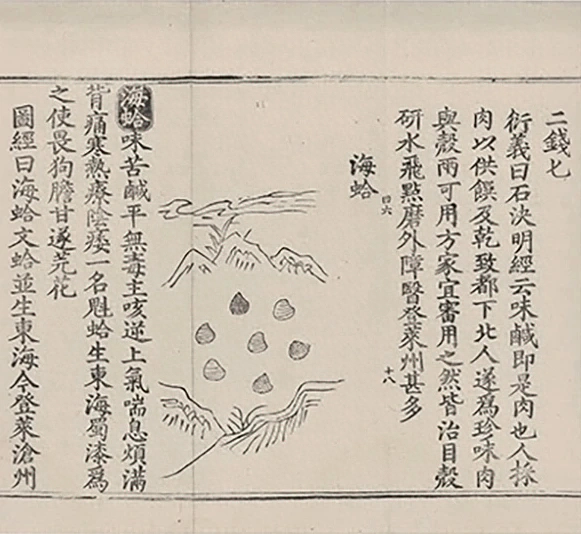 二錢匕
衍義曰石決明經云味鹹即是肉也人採
肉以供饌及乾致都下北人遂爲珍味肉
與殼兩可用方家宜審用之然皆治目殼
研水飛點磨外障瞖登萊州甚多
十八
四六
海蛤
海蛤味苦鹹平無毒主咳逆上氣喘息煩滿
胷痛寒熱療陰痿一名魁蛤生東海蜀漆爲
之使畏狗膽甘遂芫花
圖經曰海蛤文蛤並生東海今登萊滄州